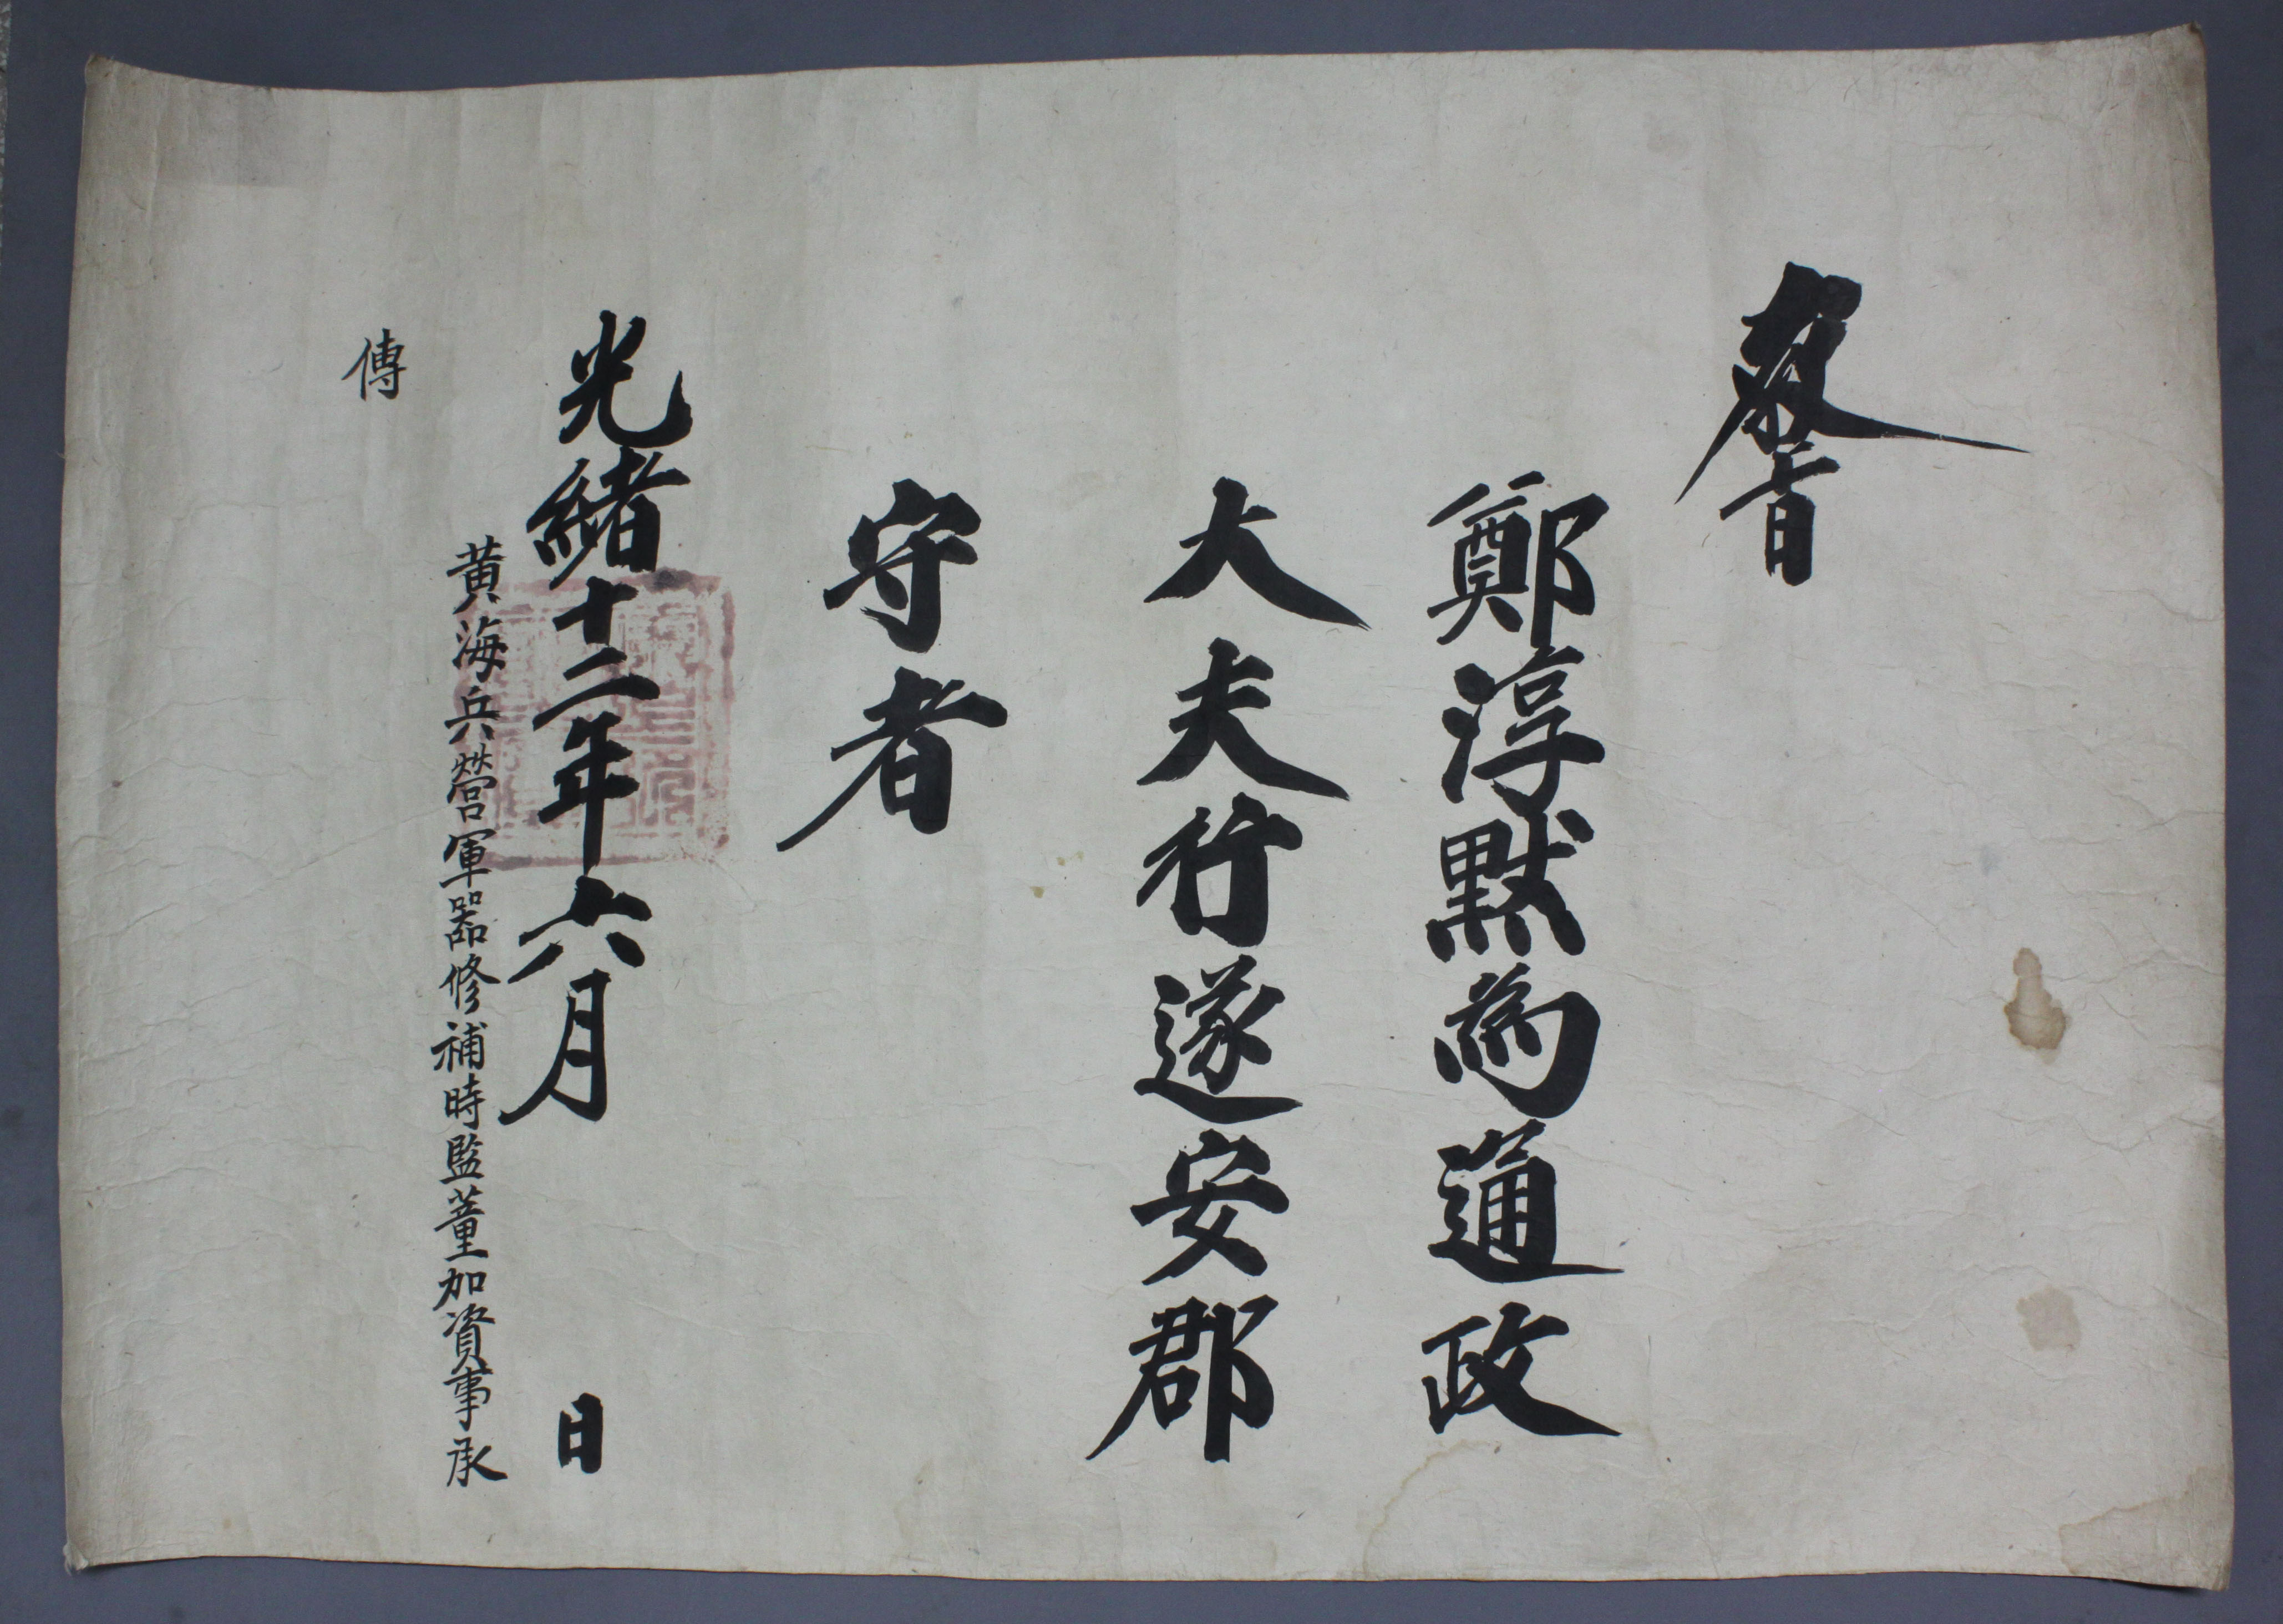 敎旨
鄭淳默爲通政
大夫行遂安郡
守者
光緖十二年六月　日
黃海兵營軍器修補時監董加資事承
傳